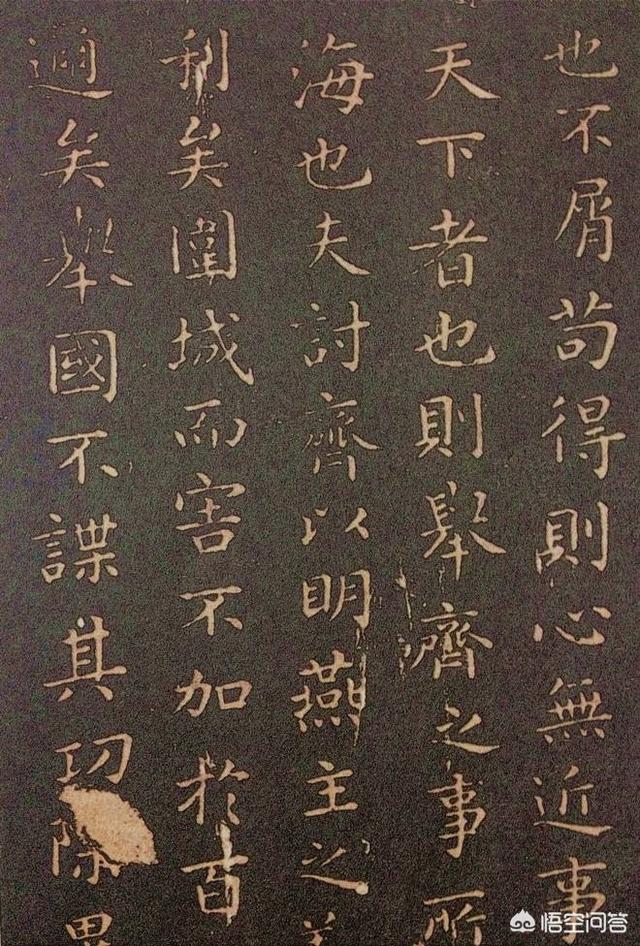 也不屑苟得則心無近事
天下者也則舉齊之事所
海也夫討齊以明燕主之
利矣圍城而害不加於百
邇矣舉國不謀其功除
悟空问答